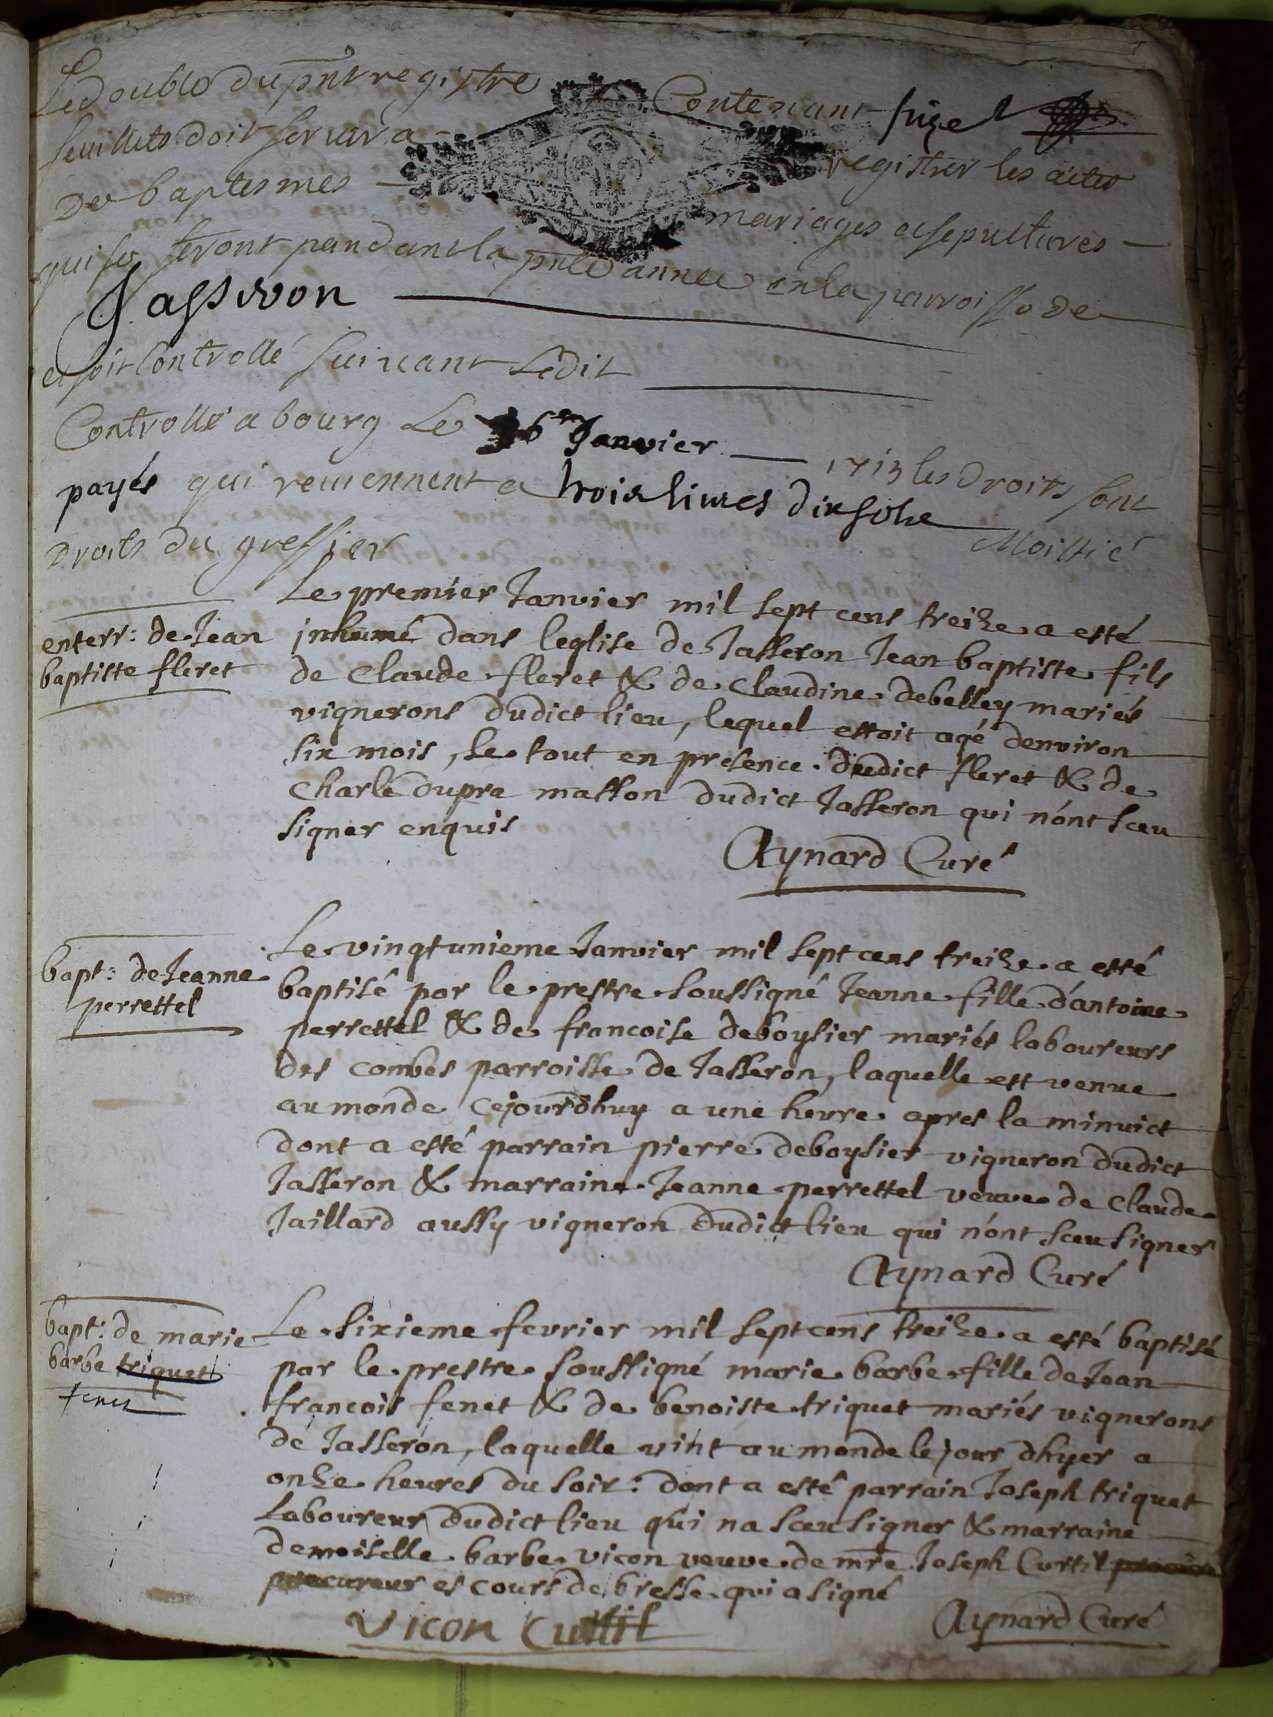 Le double du pnt registre Contenant seize
feuillets doit servir a registrer les actes
De baptesmes mariages et sepultures
qui se feront pandant la pnte annee en la parroisse de
Jasseron
et soit Controllé suivant Ledit
Controllé a bourg Le 16e Janvier 1713 les Droits sont
payés qui reviennent a trois livres dix sols Moittié
Droits du greffier
enterr: de Jean
baptiste fleret
Le premier Janvier mil sept cens treize a esté
inhumé dans leglise de Jasseron Jean baptiste fils
de Claude fleret & de Claudine debelley mariés
vignerons dudict lieu, lequel estoit agé denviron
six mois, Le tout en presence dudict fleret & de
Charle dupra masson dudict Jasseron qui n'ont sceu
signer enquis
Aynard Curé
bapt: de Jeanne
perrettel
Le vingtunieme Janvier mil sept cens treize a esté
baptisé par le prestre soussigné Jeanne fille d'antoine
perrettel & de francoise deboysier mariés laboureurs
des combes parroisse de Jasseron, laquelle est venue
au monde cejourdhuy a une heure apres la minuict
dont a esté parrain pierre deboysier vigneron dudict
Jasseron & marraine Jeanne perrettel veuve de Claude
Jaillard aussy vigneron dudict lieu qui n'ont sceu signer
Aynard Curé
bapt: de marie
barbe triquet
fenet
Le sixieme fevrier mil sept cens treize a esté baptisé
par le prestre soussigné marie barbe fille de Jean
francois fenet & de benoiste triquet mariés vignerons
de Jasseron, laquelle vint au monde le jour dhyer a
onze heures du soir: dont a esté parrain Joseph triquet
Laboureur dudict lieu qui na sceu signer & marraine
demoiselle barbe vicon veuve de mre Joseph Curtil
procureur es cours de bresse qui a signé
Aynard Curé
Vicon Curtil